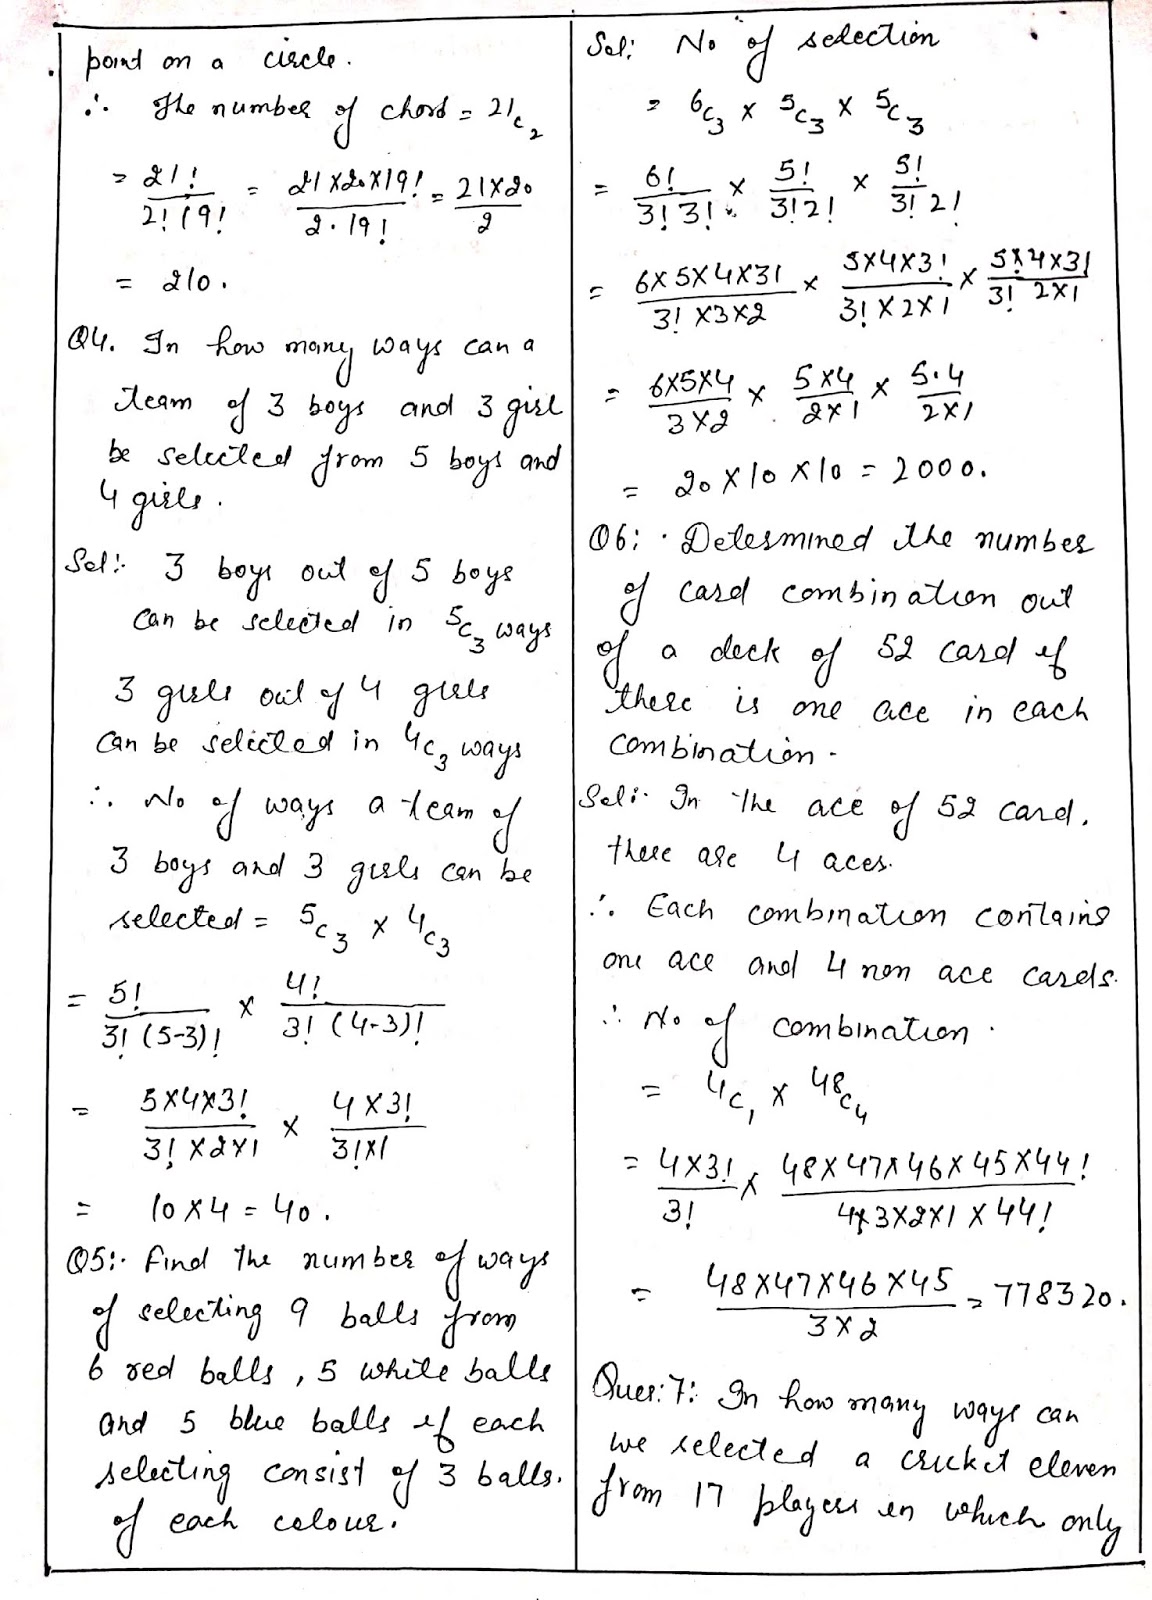 point on a circle.
∴ The number of chord = 21c₂
= 21!/2!19! = 21×20×19!/2·19! = 21×20/2
= 210.
Q4. In how many ways can a
team of 3 boys and 3 girl
be selected from 5 boys and
4 girls.
Sol:. 3 boys out of 5 boys
can be selected in ⁵c₃ ways
3 girls out of 4 girls
can be selected in ⁴c₃ ways
∴ No of ways a team of
3 boys and 3 girls can be
selected = ⁵c₃ × ⁴c₃
= 5!/3!(5-3)! × 4!/3!(4-3)!
= 5×4×3!/3!×2×1 × 4×3!/3!×1
= 10×4 = 40.
Q5:. Find the number of ways
of selecting 9 balls from
6 red balls, 5 white balls
and 5 blue balls if each
selecting consist of 3 balls.
of each colour.
Sol: No of selection
= ⁶c₃ × ⁵c₃ × ⁵c₃
= 6!/3!3! × 5!/3!2! × 5!/3!2!
= 6×5×4×3!/3!×3×2 × 5×4×3!/3!×2×1 × 5×4×3!/3! 2×1
= 6×5×4/3×2 × 5×4/2×1 × 5·4/2×1
= 20×10×10 = 2000.
Q6: Determined the number
of card combination out
of a deck of 52 card if
there is one ace in each
combination.
Sol:. In the ace of 52 card.
there are 4 aces.
∴ Each combination contains
one ace and 4 non ace cards.
∴ No of combination.
= ⁴c₁ × ⁴⁸c₄
= 4×3!/3! × 48×47×46×45×44!/4×3×2×1×44!
= 48×47×46×45/3×2 = 778320.
Ques:7: In how many ways can
we selected a cricket eleven
from 17 players in which only